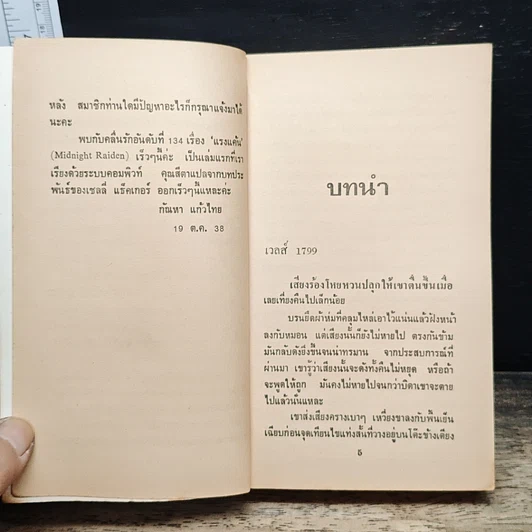 หลัง สมาชิกท่านใดมีปัญหาอะไรก็กรุณาแจ้งมาได้
นะคะ
พบกับคลื่นรักอันดับที่ 134 เรื่อง 'แรงแค้น'
(Midnight Raiden) เร็วๆนี้ค่ะ เป็นเล่มแรกที่เรา
เรียงด้วยระบบคอมพิวท์ คุณสีตาแปลจากบทประ
พันธ์ของเชลลี่ แธ็คเกอร์ ออกเร็วๆนี้แหละค่ะ
กัณหา แก้วไทย
19 ต.ค. 38
บทนำ
เวลส์ 1799
เสียงร้องโหยหวนปลุกให้เขาตื่นขึ้นเมื่อ
เลยเที่ยงคืนไปเล็กน้อย
บรนยึดผ้าห่มที่คลุมไหล่เอาไว้แน่นแล้วฝังหน้า
ลงกับหมอน แต่เสียงนั้นก็ยังไม่หายไป ตรงกันข้าม
มันกลับดังยิ่งขึ้นจนน่าทรมาน จากประสบการณ์ที่
ผ่านมา เขารู้ว่าเสียงนั้นจะดังทั้งคืนไม่หยุด หรือถ้า
จะพูดให้ถูก มันคงไม่หายไปจนกว่าบิดาเขาจะตาย
ไปแล้วนั่นแหละ
เขาส่งเสียงครางเบาๆ เหวี่ยงขาลงกับพื้นเย็น
เฉียบก่อนจุดเทียนไขแท่งสั้นที่วางอยู่บนโต๊ะข้างเตียง
5